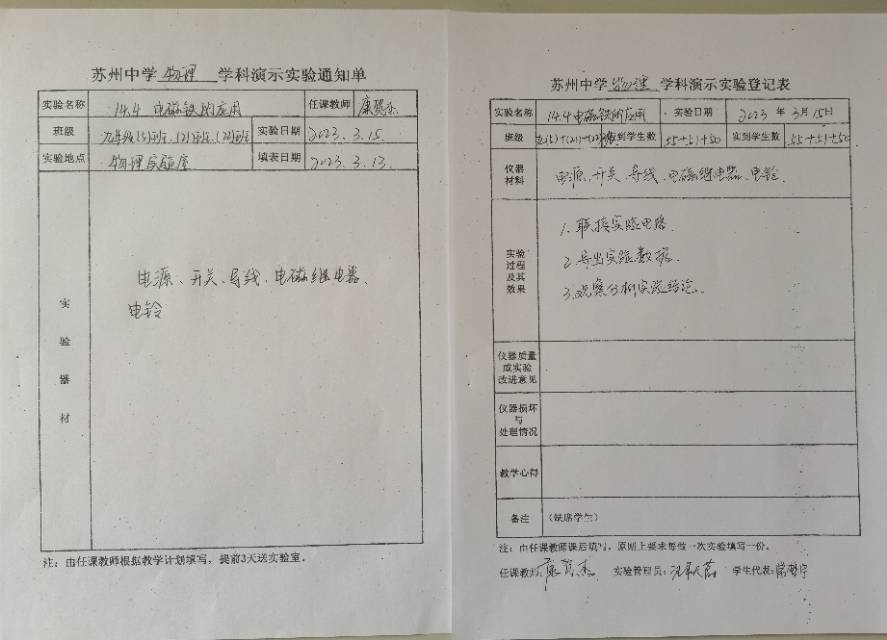 苏州中学 物理 学科演示实验通知单
实验名称 14.4 电磁铁的应用 任课教师
班级 实验日期 2023.3.15.
实验地点 物理实验室 填表日期 2023.3.13.
实验器材
电源、开关、导线、电磁继电器、
电铃
注：由任课教师根据教学计划填写，提前3天送实验室。
苏州中学 物理 学科演示实验登记表
实验名称 14.4 电磁铁的应用 实验日期 2023 年 3月 15日
班级 到学生数 55+51+50 实到学生数 55+51+50
仪器
材料
电源、开关、导线、电磁继电器、电铃.
实验
过程
及其
效果
1. 联接实验电路.
2. 导出实验数据.
3. 观察分析实验结论.
仪器质量
或实验
改进意见
仪器损坏
与
处理情况
教学心得
备注 （缺席学生）
注：由任课教师课后填写，原则上要求每做一次实验填写一份。
任课教师: 实验管理员: 学生代表: